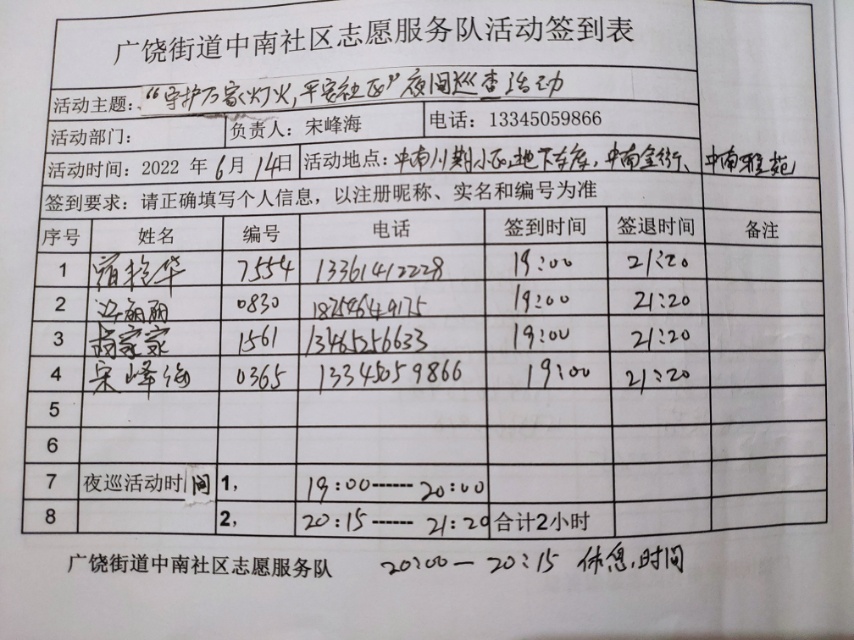 广饶街道中南社区志愿服务队活动签到表
活动主题:"守护万家灯火,平安社区"夜间巡查活动
活动部门: 负责人:宋峰海 电话:13345059866
活动时间:2022 年 6月 14日 活动地点:中南小区地下车库,中南金街、中南雅苑
签到要求:请正确填写个人信息,以注册昵称、实名和编号为准
序号 姓名 编号 电话 签到时间 签退时间 备注
1 华 7554 13361412228 19:00 21:20
2 丽丽 0830 18254649175 19:00 21:20
3 杨家家 1561 13465256633 19:00 21:20
4 宋峰海 0365 13345059866 19:00 21:20
5
6
7 夜巡活动时间 1, 19:00------20:00
8 2, 20:15------21:20 合计2小时
广饶街道中南社区志愿服务队 20:00—20:15 休息,时间